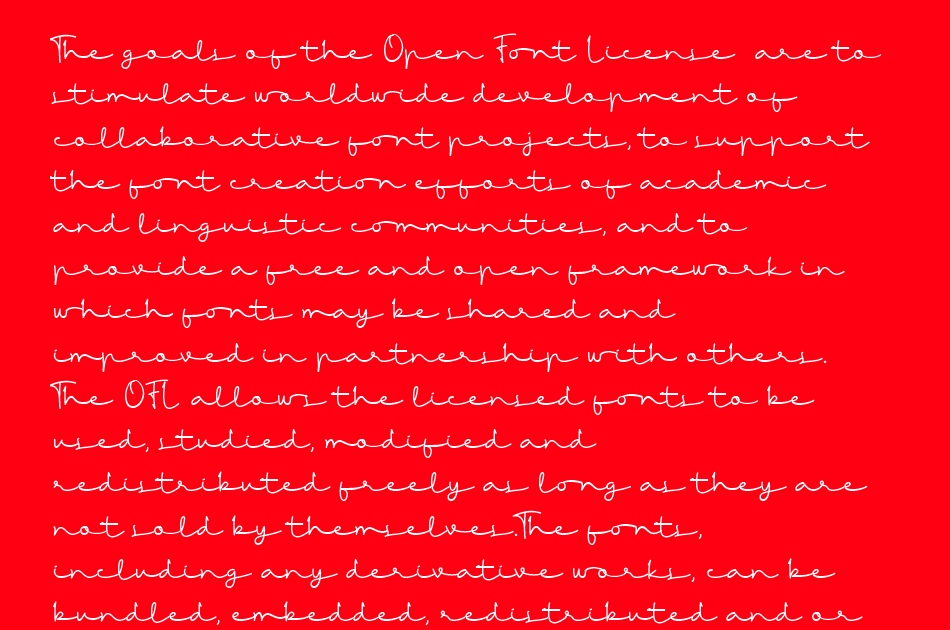 The goals of the Open Font License are to
stimulate worldwide development of
collaborative font projects, to support
the font creation efforts of academic
and linguistic communities, and to
provide a free and open framework in
which fonts may be shared and
improved in partnership with others.
The OFL allows the licensed fonts to be
used, studied, modified and
redistributed freely as long as they are
not sold by themselves.The fonts,
including any derivative works, can be
bundled, embedded, redistributed and or